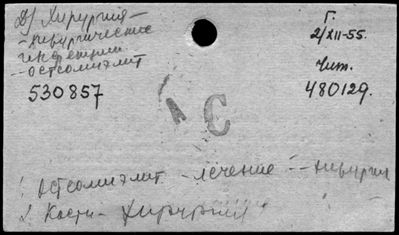 Д/ Хирургия –
– хирургические
инфекции
– остеомиэлит
530857
Г.
2/XII-55.
Чит.
480129.
А С
1. Остеомиэлит – лечение – хирургия
2. Кости – хирургия